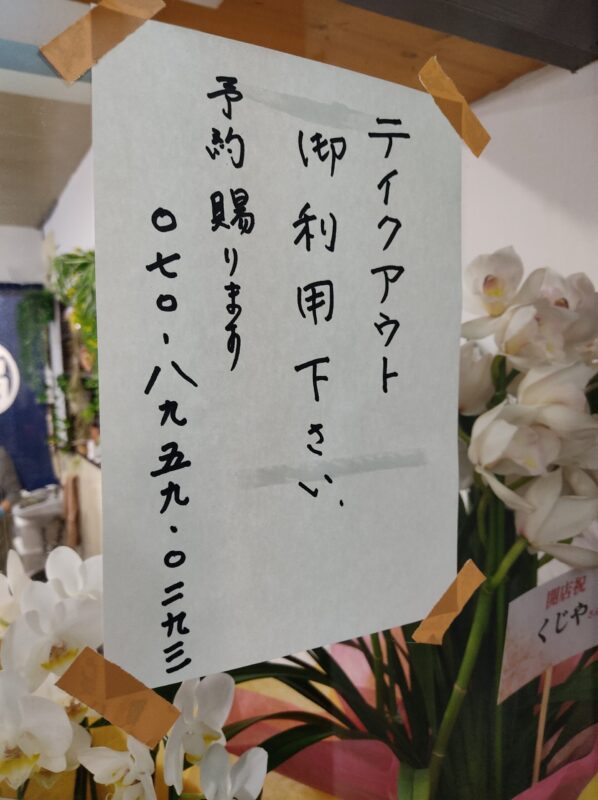 テイクアウト
御利用下さい、
予約賜ります
〇七〇-八九五九・〇二九三
開店祝
くじやさん